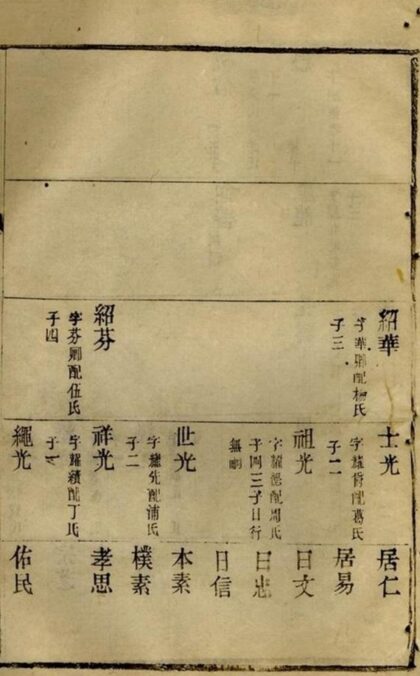 紹華
字華卿配楊氏
子三
紹芬
字芬卿配伍氏
子四
士光
字耀衢配葛氏
子二
祖光
字耀德配周氏
子四三子日行
無嗣
世光
字耀先配浦氏
子二
祥光
字耀續配丁氏
子
繩光
居仁
居易
日文
日忠
日信
本素
樸素
孝思
佑民